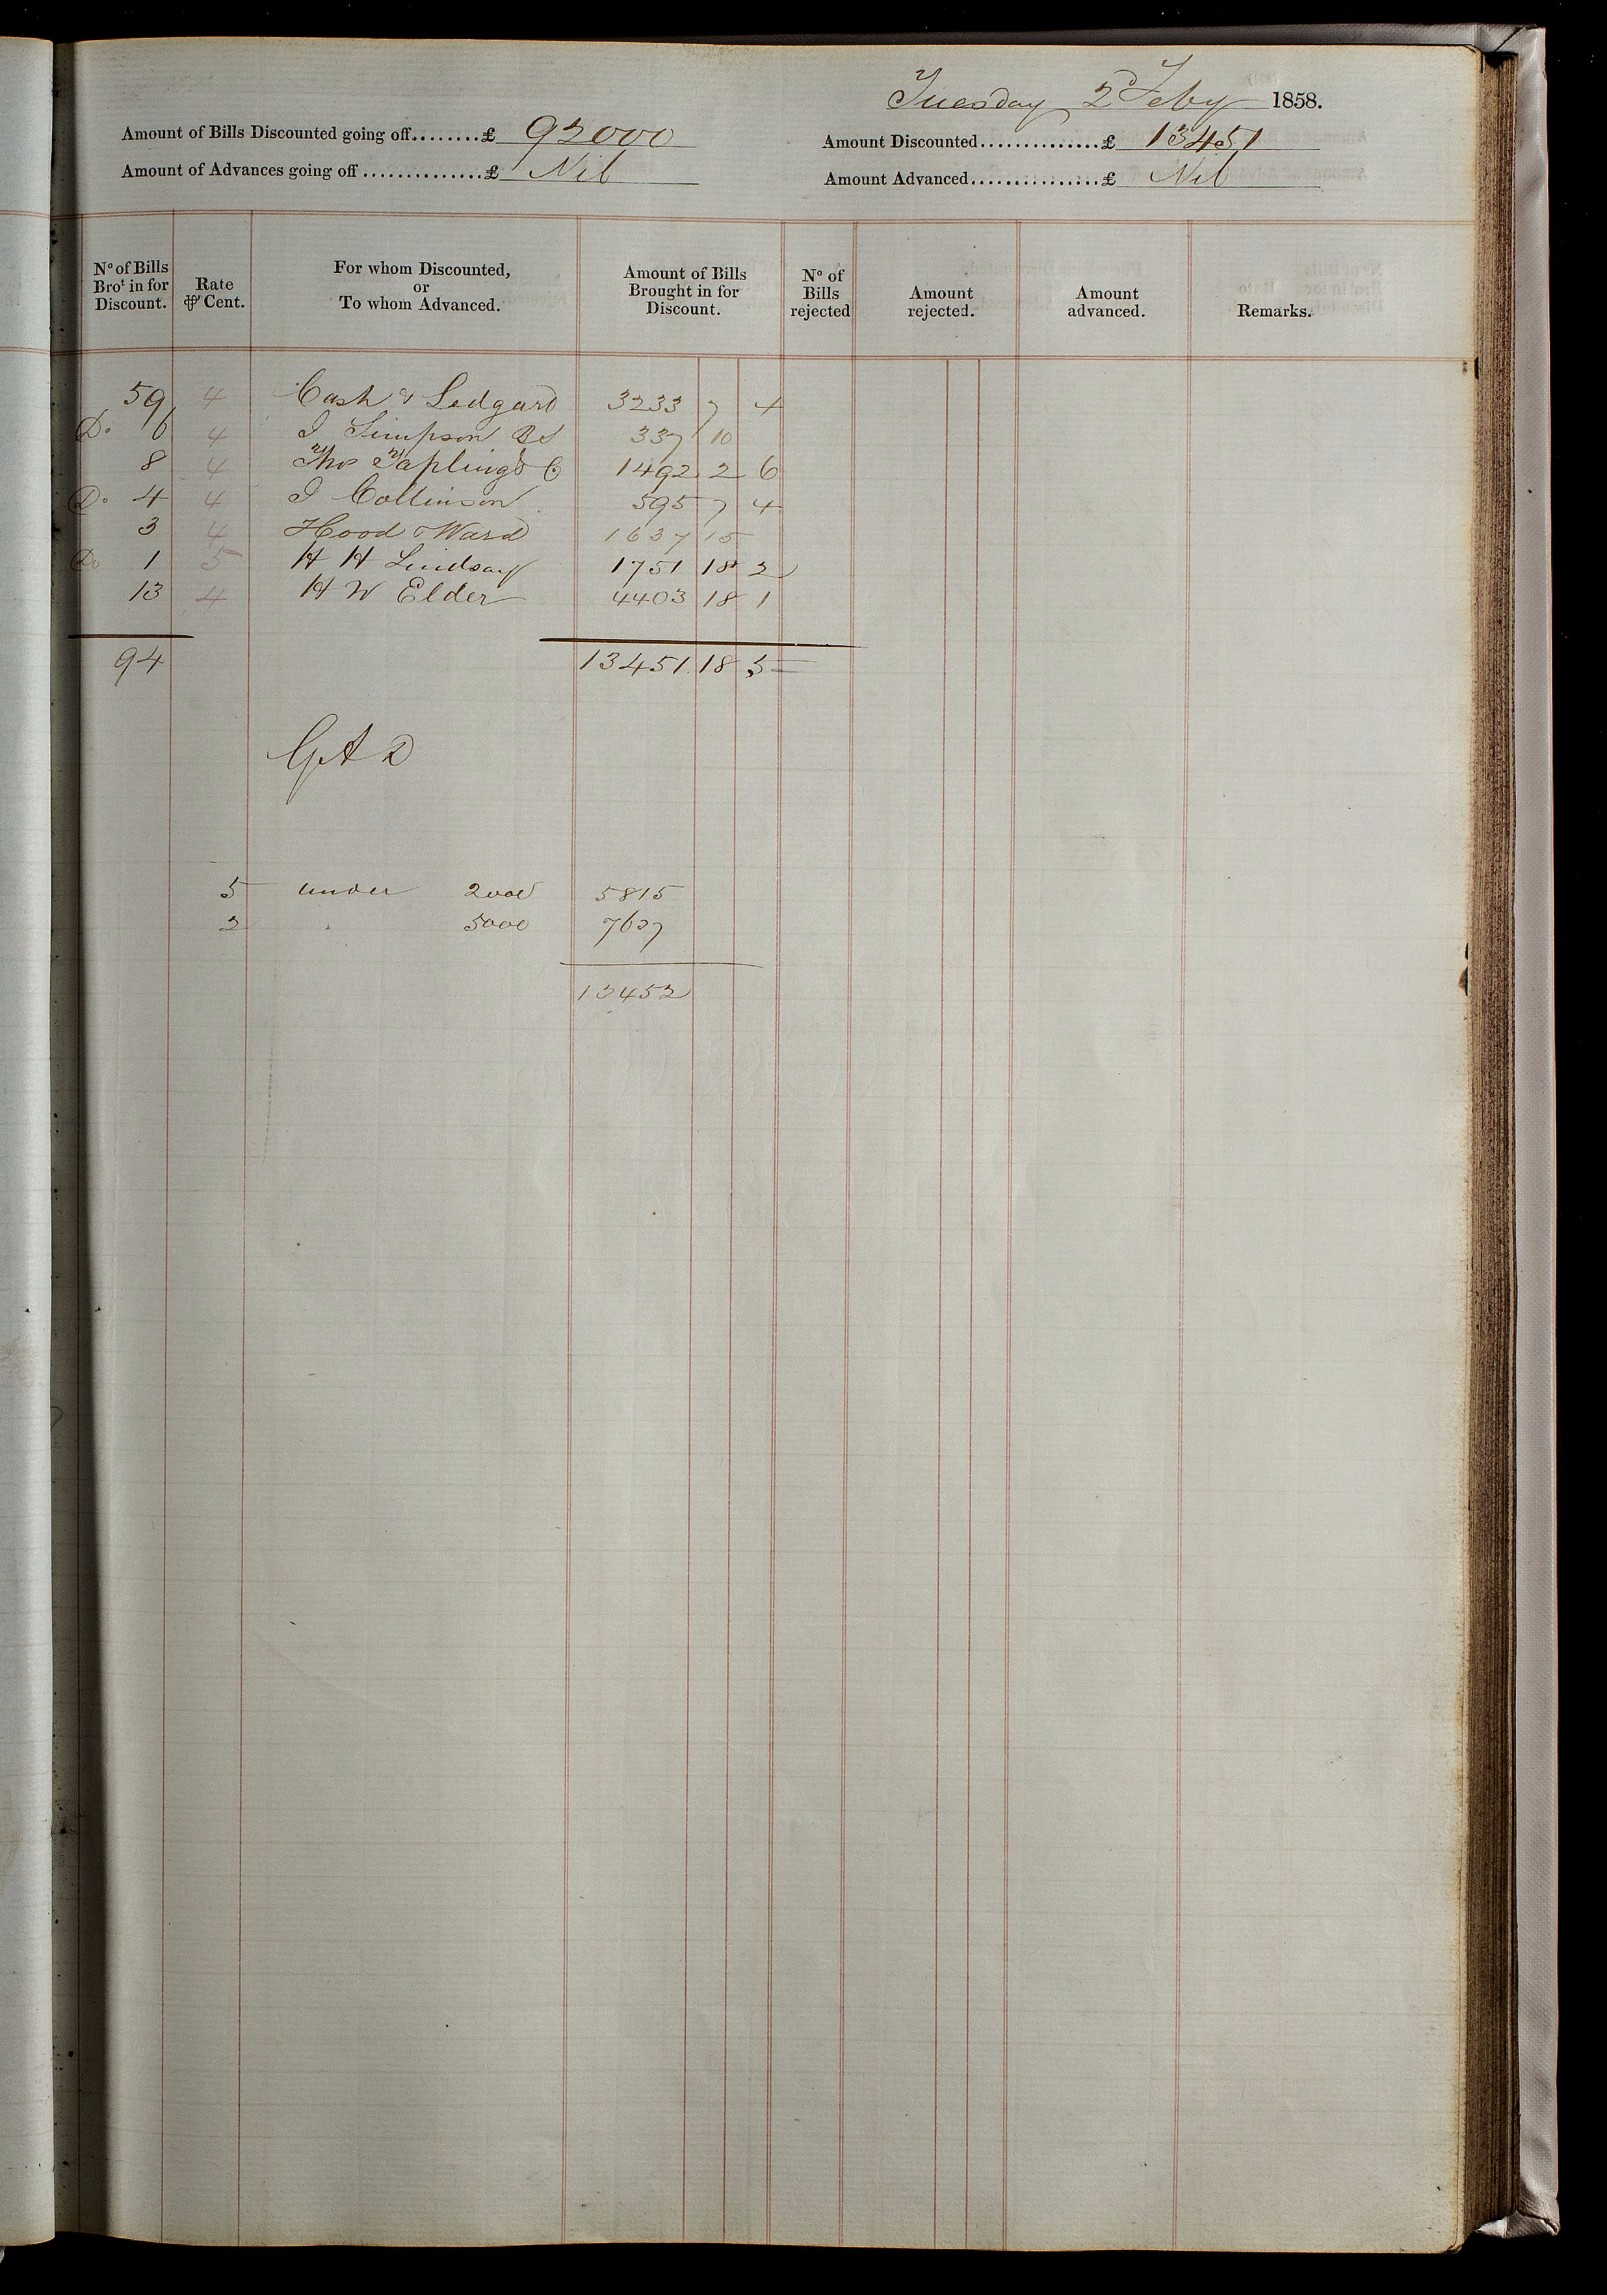 Tuesday 2d Feby 1858.
Amount of Bills Discounted going off........£ 92000
Amount Discounted...............£ 13451
Amount of Advances going off...............£ Nil
Amount Advanced................£ Nil
No of Bills Brot in for Discount.
Rate ⅌ Cent.
For whom Discounted, or To whom Advanced.
Amount of Bills Brought in for Discount.
No of Bills rejected
Amount rejected.
Amount advanced.
Remarks.
59 4 Cash & Ledgard 3233 7 4
Do 6 4 J Simpson 337 10
8 4 Thos Tapling & Co 1492 2 6
Do 4 4 J Collinson 595 7 4
3 4 Hood & Ward 1637 15
Do 1 5 H H Lindsay 1751 18 2
13 4 H W Elder 4403 18 1
94 13451 18 5
5 under 2000 5815
2 " 5000 7637
13452